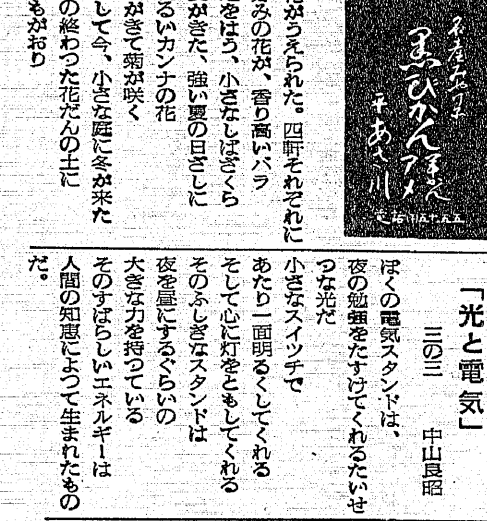 名産みやげ
黒ひかん羊羹
アメ
平あさ川
がうえられた。四軒それぞれに
みの花が、香り高いバラ
をはう、小さなしばざくら
がきた、強い夏の日ざしに
るいカンナの花
がきて菊が咲く
して今、小さな庭に冬が来た
の終わつた花だんの土に
もがおり
「光と電気」
三の三　中山良昭
ぼくの電気スタンドは、
夜の勉強をたすけてくれるたいせ
つな光だ
小さなスイッチで
あたり一面明るくしてくれる
そして心に灯をともしてくれる
そのふしぎなスタンドは
夜を昼にするぐらいの
大きな力を持つている
そのすばらしいエネルギーは
人間の知恵によつて生まれたもの
だ。